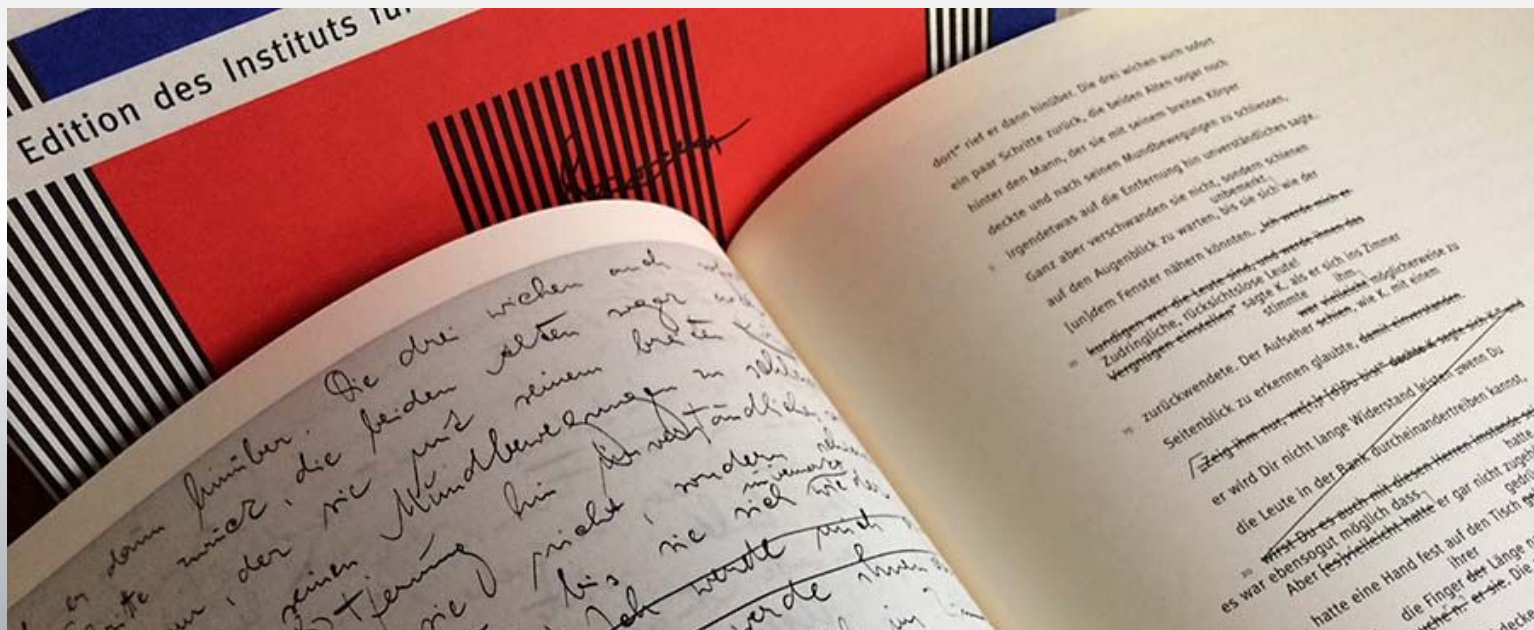 Edition des Instituts für
Die drei wichen auch
dann hinüber.
zurück, die beiden Alten sogar noch
der sie mit seinem breiten
seinen Mundbewegungen zu schliessen
hin unverständliches
sie nicht, sondern schienen
unbemerkt
bis sie sich wie der
Ich werde mich
werde ihnen
dort" rief er dann hinüber. Die drei wichen auch sofort
ein paar Schritte zurück, die beiden Alten sogar noch
hinter den Mann, der sie mit seinem breiten Körper
deckte und nach seinen Mundbewegungen zu schliessen,
irgendetwas auf die Entfernung hin unverständliches sagte.
5
Ganz aber verschwanden sie nicht, sondern schienen
unbemerkt
auf den Augenblick zu warten, bis sie sich wie der
[un]dem Fenster nähern könnten. „Ich werde mich e-
kundigen wer die Leute sind, und werde ihnen das
Zudringliche, rücksichtslose Leute!
10
Vergnügen einstellen" sagte K. als er sich ins Zimmer
stimmte ihm
zurückwendete. Der Aufseher schien, wie K. mit einem
war vielleicht möglicherweise zu
15
Seitenblick zu erkennen glaubte, damit einverstanden.
er wird Dir nicht lange Widerstand leisten wenn Du
die Leute in der Bank durcheinandertreiben kannst,
20
wirst Du es auch mit diesen Herren imstande
es war ebensogut möglich dass
hatte
Aber [es]vielleicht hatte er gar nicht
hatte eine Hand fest auf den Tisch
ihrer
die Finger der Länge
er sie. Die